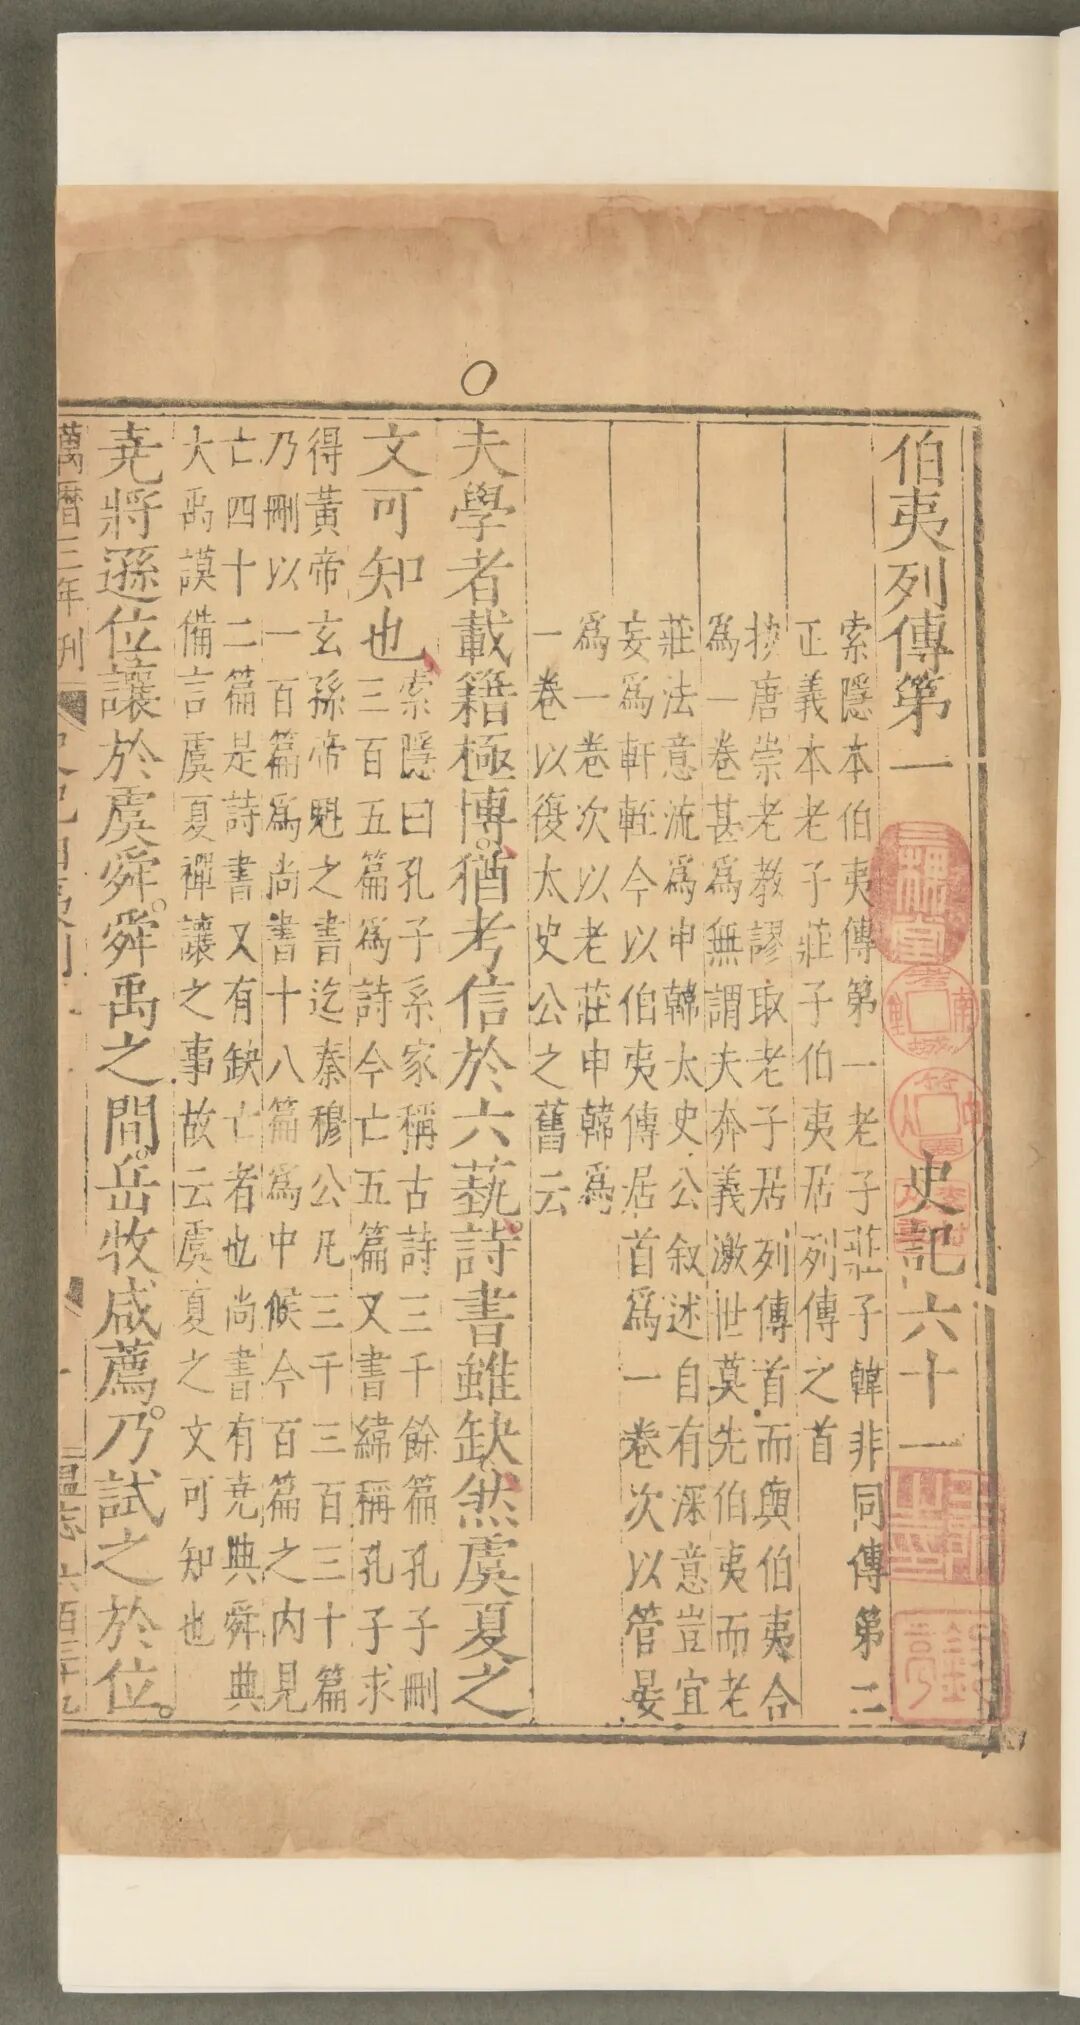 伯夷列傳第一 史記六十一
索隱本伯夷傳第一老子莊子韓非同傳第二
正義本老子莊子伯夷居列傳之首
按唐崇老教謬取老子居列傳首而與伯夷合
爲一卷甚爲無謂夫奔義激世莫先伯夷而老
莊法意流爲申韓太史公叙述自有深意豈宜
妄爲軒輊今以伯夷傳居首爲一卷次以管晏
爲一卷次以老莊申韓爲
一卷以復太史公之舊云
夫學者載籍極博猶考信於六蓺詩書雖缺然虞夏之
文可知也
索隱曰孔子系家稱古詩三千餘篇孔子刪
三百五篇爲詩今亡五篇又書緯稱孔子求
得黃帝玄孫帝魁之書迄秦穆公凡三千三百三十篇
乃刪以一百篇爲尚書十八篇爲中候今百篇之内見
亡四十二篇是詩書又有缺亡者也尚書有尭典舜典
大禹謨備言虞夏禪讓之事故云虞夏之文可知也
尭將遜位讓於虞舜舜禹之間岳牧咸薦乃試之於位
萬曆三年刊